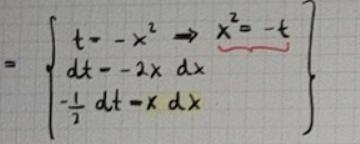 = { t = -x² ⇒ x² = -t
dt = -2x dx
-1/2 dt = x dx }